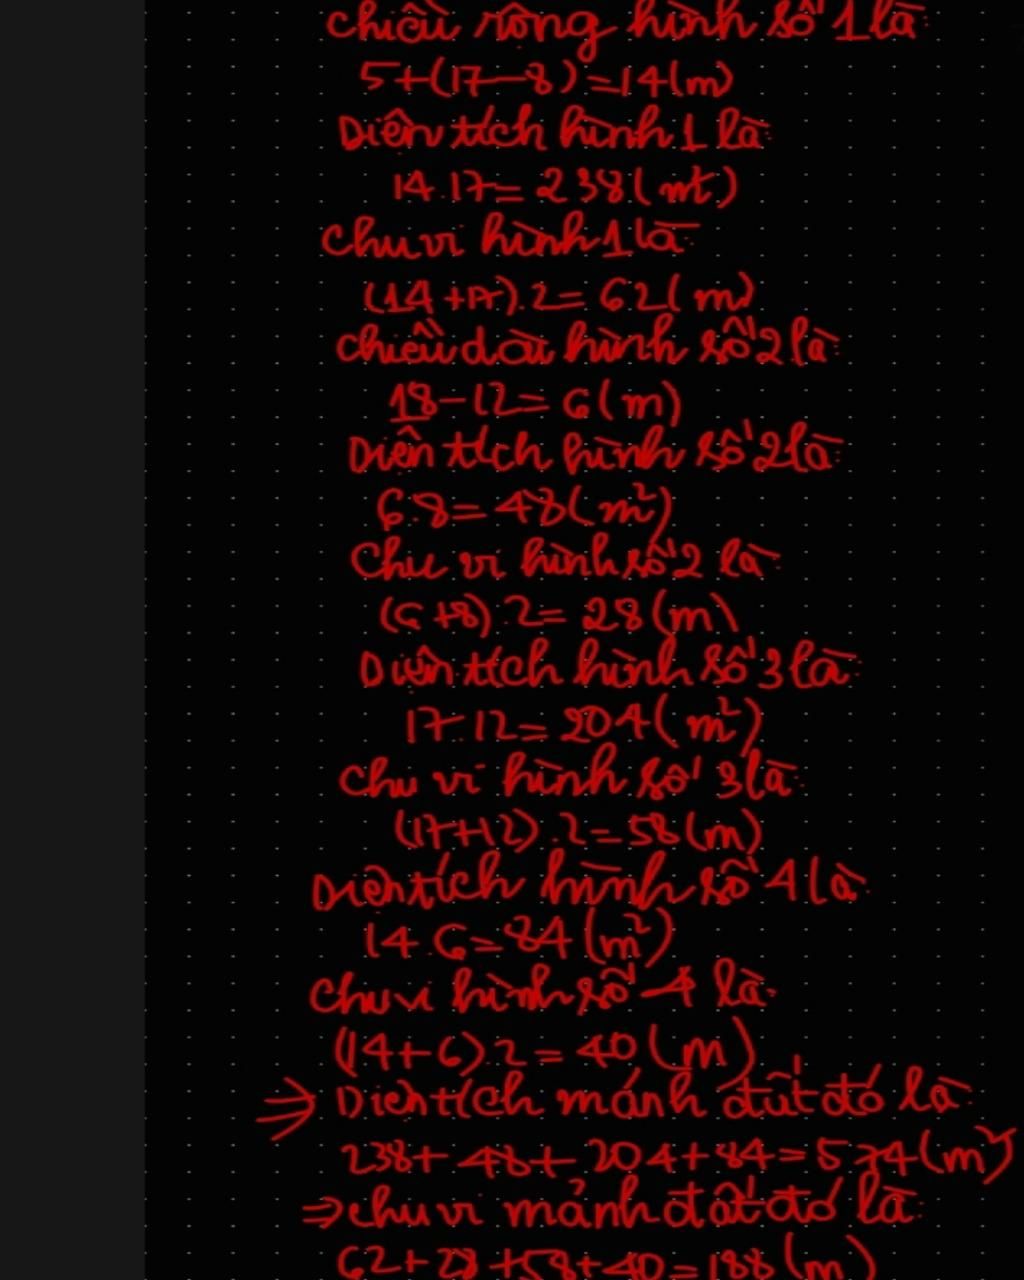 chiều rộng hình số 1 là
5+(17-8)=14(m)
Diện tích hình 1 là
14.17=238(m²)
Chu vi hình 1 là
(14+17).2=62(m)
chiều dài hình số 2 là
18-12=6(m)
Diện tích hình số 2 là
6.8=48(m²)
Chu vi hình số 2 là
(6+8).2=28(m)
Diện tích hình số 3 là
17.12=204(m²)
Chu vi hình số 3 là
(17+12).2=58(m)
Diện tích hình số 4 là
14.6=84(m²)
Chu vi hình số 4 là
(14+6).2=40(m)
⇒ Diện tích mảnh đất đó là
238+48+204+84=574(m²)
⇒ chu vi mảnh đất đó là
62+28+58+40=188(m)